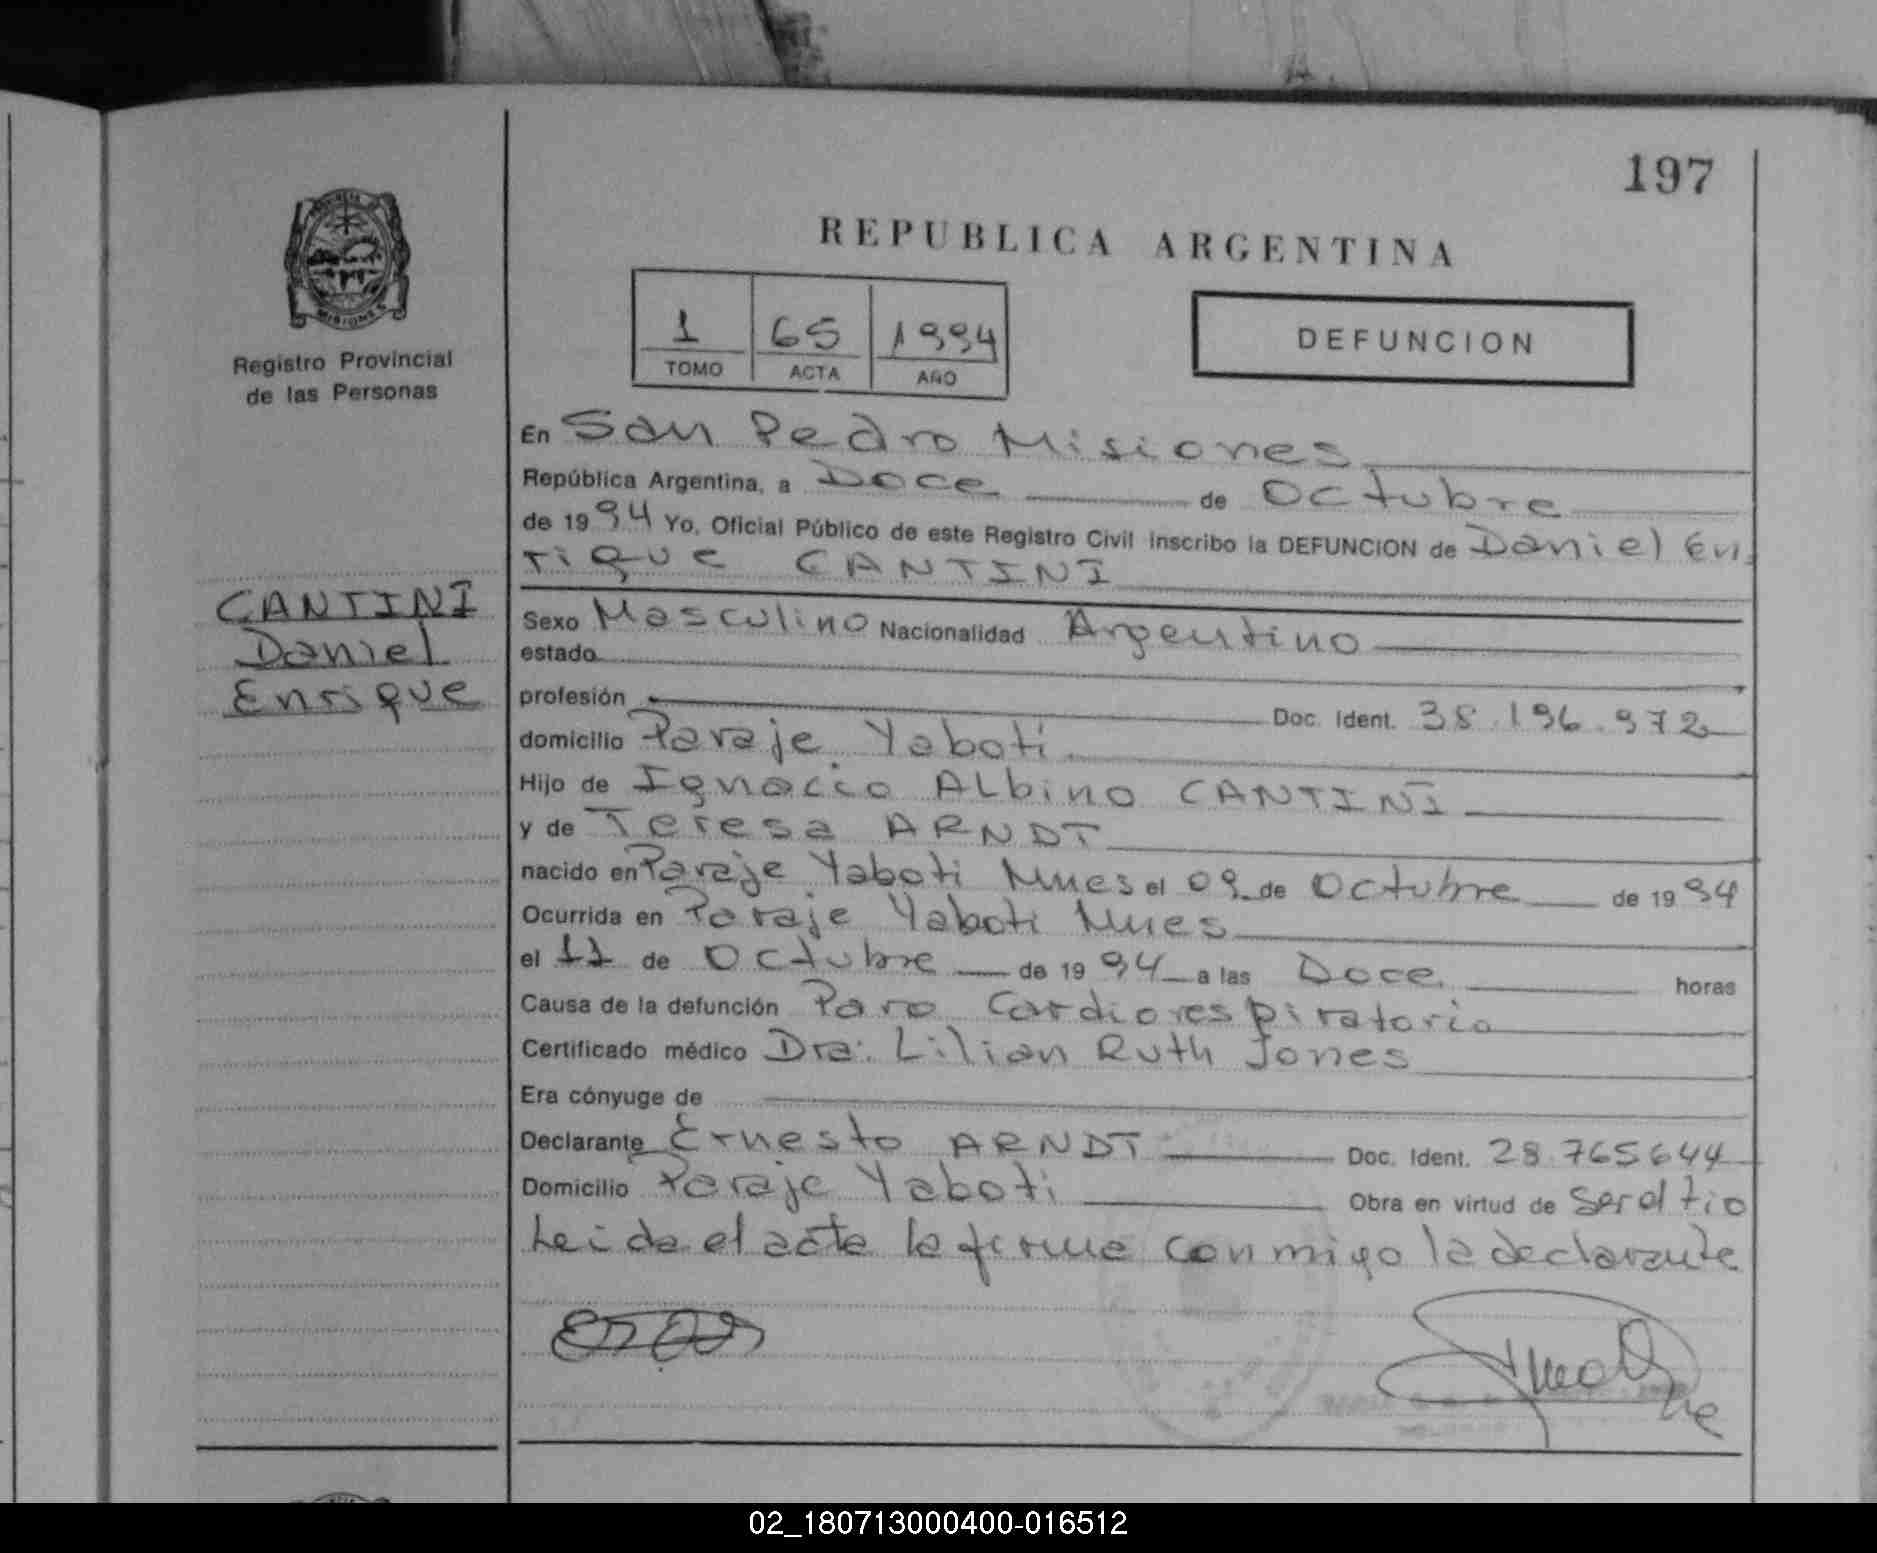 197
REPUBLICA ARGENTINA
PROVINCIA
MISIONES
Registro Provincial
de las Personas
1 65 1994
TOMO ACTA AÑO
DEFUNCION
En San Pedro Misiones
República Argentina, a Doce de Octubre
de 1994 Yo, Oficial Público de este Registro Civil inscribo la DEFUNCION de Daniel En
rique CANTINI
CANTINI
Daniel
Enrique
Sexo Masculino Nacionalidad Argentino
estado
profesión Doc. Ident. 38.196.972
domicilio Paraje Yaboti
Hijo de Ignacio Albino CANTINI
y de Teresa ARNDT
nacido en Paraje Yaboti Mnes el 09 de Octubre de 1994
Ocurrida en Paraje Yaboti Mnes
el 11 de Octubre de 1994 a las Doce horas
Causa de la defunción Paro Cardiorespiratorio
Certificado médico Dra: Lilian Ruth Jones
Era cónyuge de
Declarante Ernesto ARNDT Doc. Ident. 28.765644
Domicilio Paraje Yaboti Obra en virtud de ser el tio
Leida el acta la firma conmigo la declarante
02_180713000400-016512